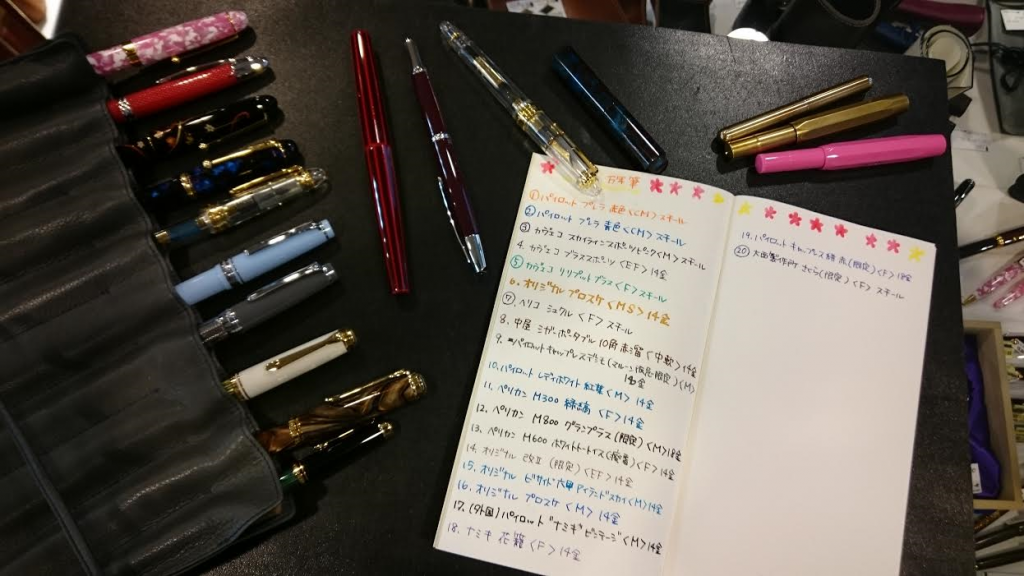 万年筆
①パイロット プレラ 赤色〈M〉スチール
②パイロット プレラ 青色〈M〉スチール
③カヴェコ スカイラインスポーツピンク〈M〉スチール
4. カヴェコ ブラススポーツ〈EF〉14金
⑤カヴェコ リリプット ブラス〈F〉スチール
6. オリジナル プロスケ〈MS〉14金
⑦ペリコ 〈F〉スチール
8. 中屋 ポータブル 10角 赤溜〈中軟〉14金
9. パイロットキャップレスデシモ(マルーン 限定)〈M〉
14金
10. パイロット レディホワイト 紅葉〈M〉14金
11. ペリカン M300 緑縞〈F〉14金
12. ペリカン M800 グランプラス(限定)〈M〉18金
13. ペリカン M600 ホワイトトートイス〈F〉14金
14. オリジナル 改Ⅱ(限定)〈EF〉14金
15. オリジナル 六甲アイランドスカイ〈M〉14金
16. オリジナル プロスケ〈M〉14金
17. パイロット "ナミキ" ビンテージ〈M〉14金
18. ナミキ 花籠〈F〉14金
19. パイロット キャップレス 赤(限定)〈F〉18金
⑳大西製作所 さくら(限定)〈F〉スチール